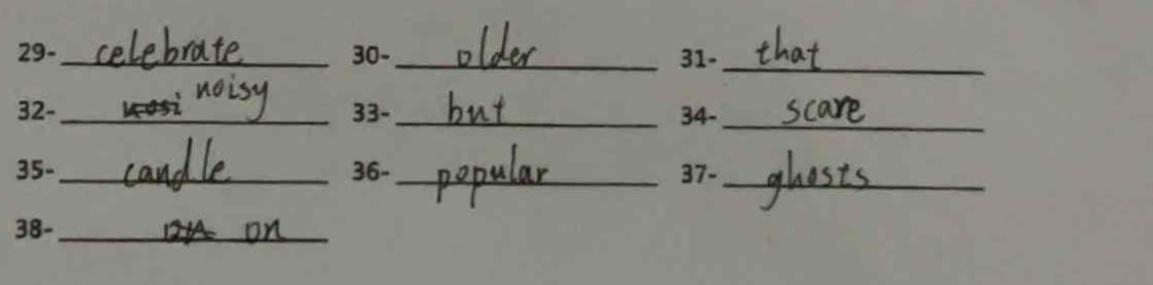 29- celebrate 30- older 31- that
32- noisy 33- but 34- scare
35- candle 36- popular 37- ghosts
38- on